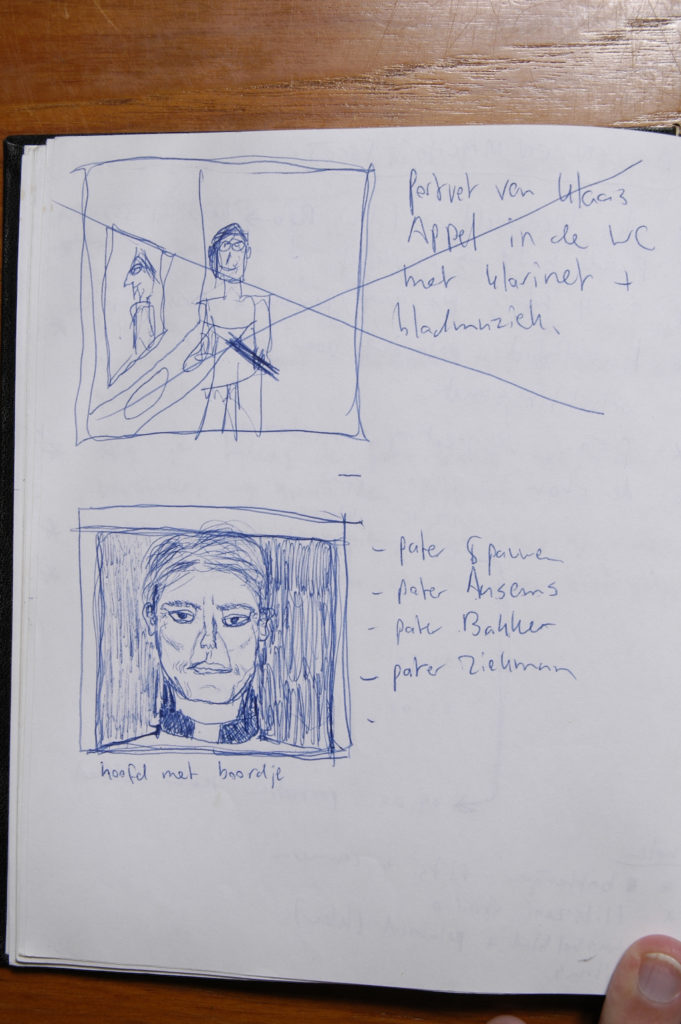 Portret van Klaas
Appel in de WC
met klarinet +
bladmuziek.
- pater Spauwen
- pater Ansems
- pater Bakker
- pater Ziekmann
-
hoofd met boordje